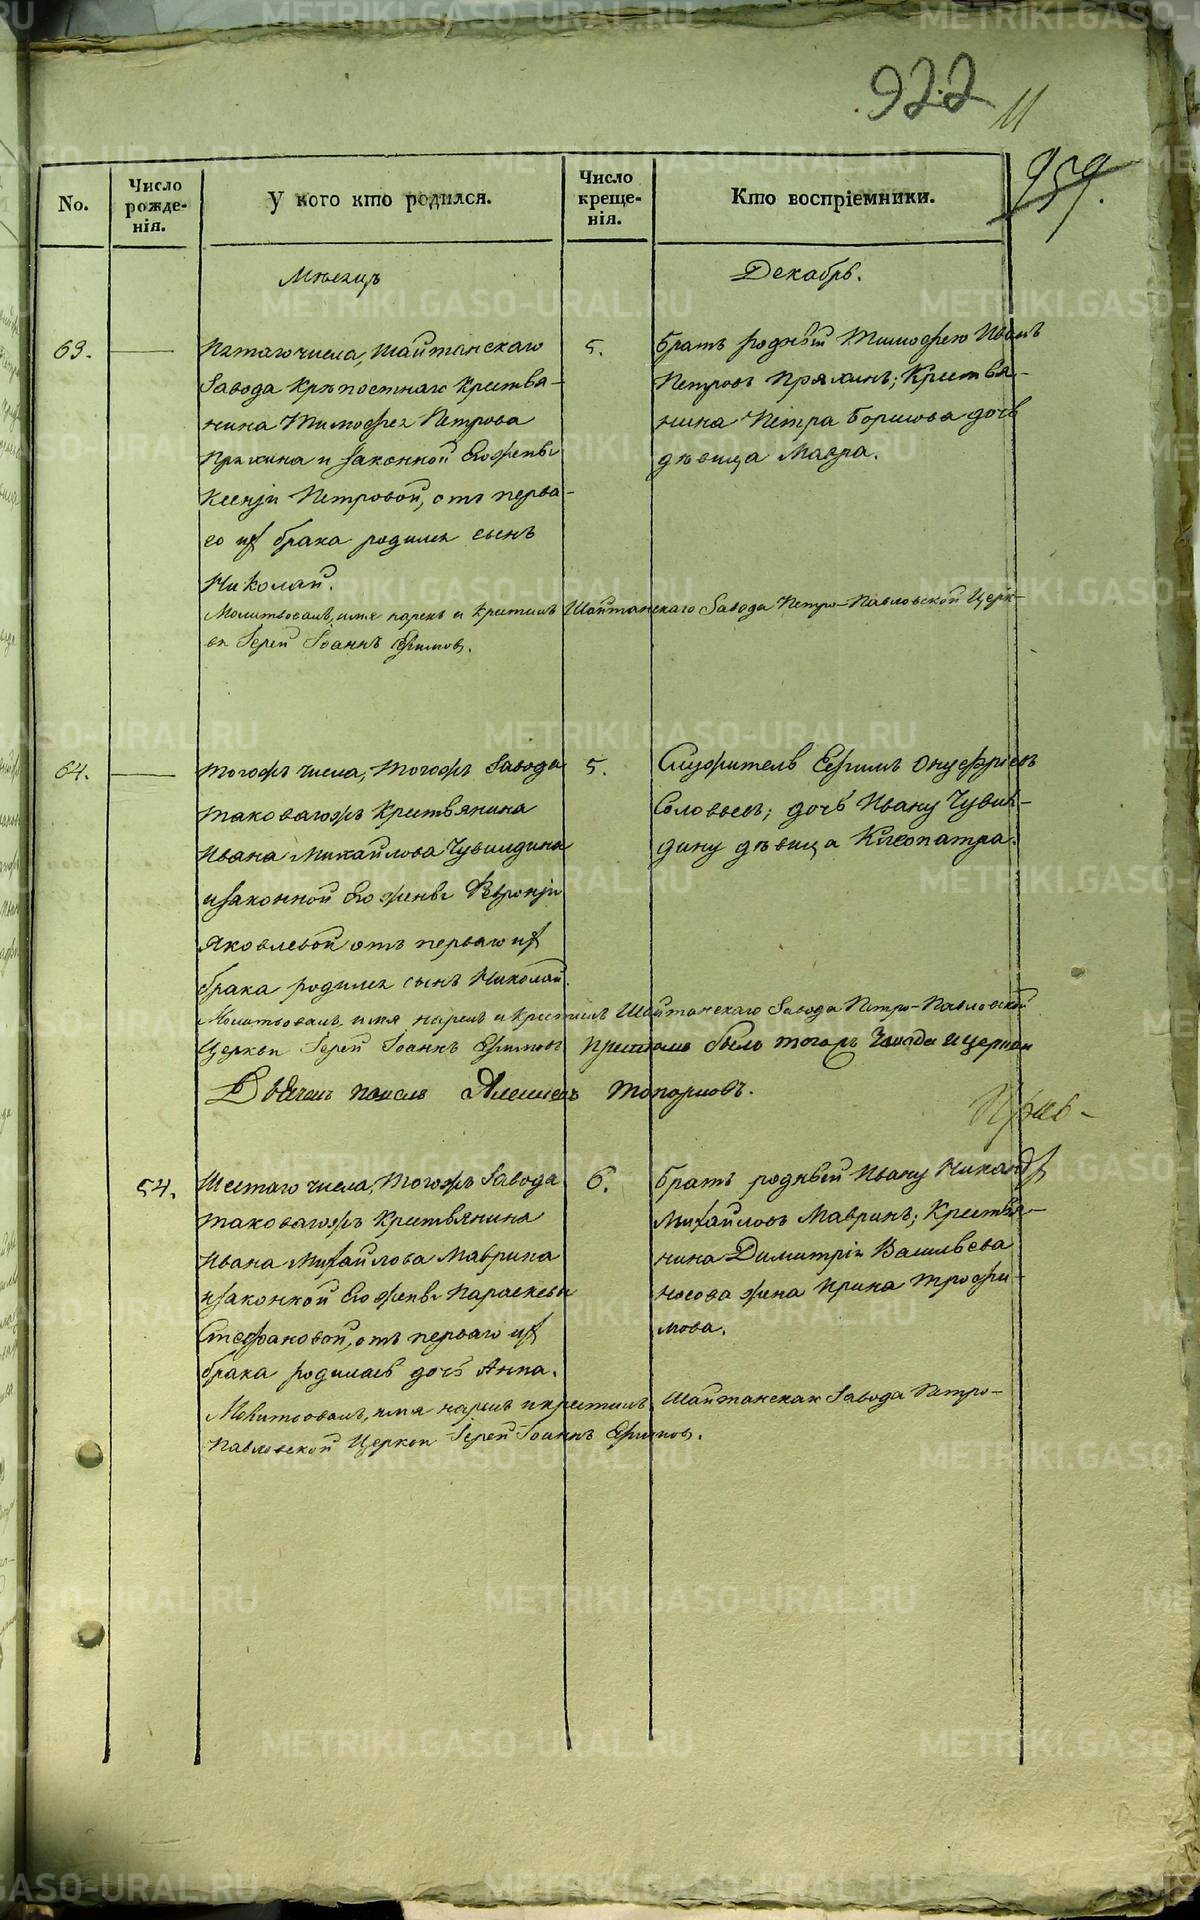 922
11
959.
No.
Число рожде-нія.
У кого кто родился.
Число креще-нія.
Кто воспріемники.
Мѣсяцъ
Декабрь.
63.
Пятаго числа, Шайтанскаго
Завода Крѣпостнаго Крестья-
нина Тимофея Петрова
Пряхина и законной Его жены
Ксеніи Петровой, отъ перва-
го их брака родился сынъ
Николай.
5.
Братъ родный Тимофею Иванъ
Петровъ Пряхинъ; Крестья-
нина Петра Борисова дочь
дѣвица Мавра.
Молитвовалъ, имя нарекъ и крестилъ Шайтанскаго Завода Петро-Павловской Церк-
ви Іерей Іоаннъ Ефимовъ.
64.
Тогожъ числа, Тогожъ Завода
таковагожъ Крестьянина
Ивана Михайлова Чувилдина
и законной Его жены Февроніи
Яковлевой отъ перваго их
брака родился сынъ Николай.
5.
Служитель Ефимъ Онуфріевъ
Соловьевъ; дочь Ивану Чувил-
дину дѣвица Клеопатра.
Молитвовалъ, имя нарекъ и крестилъ Шайтанскаго Завода Петро-Павловской
Церкви Іерей Іоаннъ Ефимовъ При томъ былъ тогожъ Завода и церкви
Дьячекъ Алексѣй Топорковъ.
54.
Шестаго числа, Тогожъ Завода
таковагожъ Крестьянина
Ивана Михайлова Маврина
и законной Его жены Параскевы
Стефановой, отъ перваго их
брака родилась дочь Анна.
6.
Братъ родный Ивану Никандр
Михайловъ Мавринъ; Крестья-
нина Димитрія Васильева
Носова жена Ирина Трофи-
мова.
Молитвовалъ, имя нарекъ и крестилъ Шайтанскаго Завода Петро-
Павловской Церкви Іерей Іоаннъ Ефимовъ.
METRIKI.GASO-URAL.RU